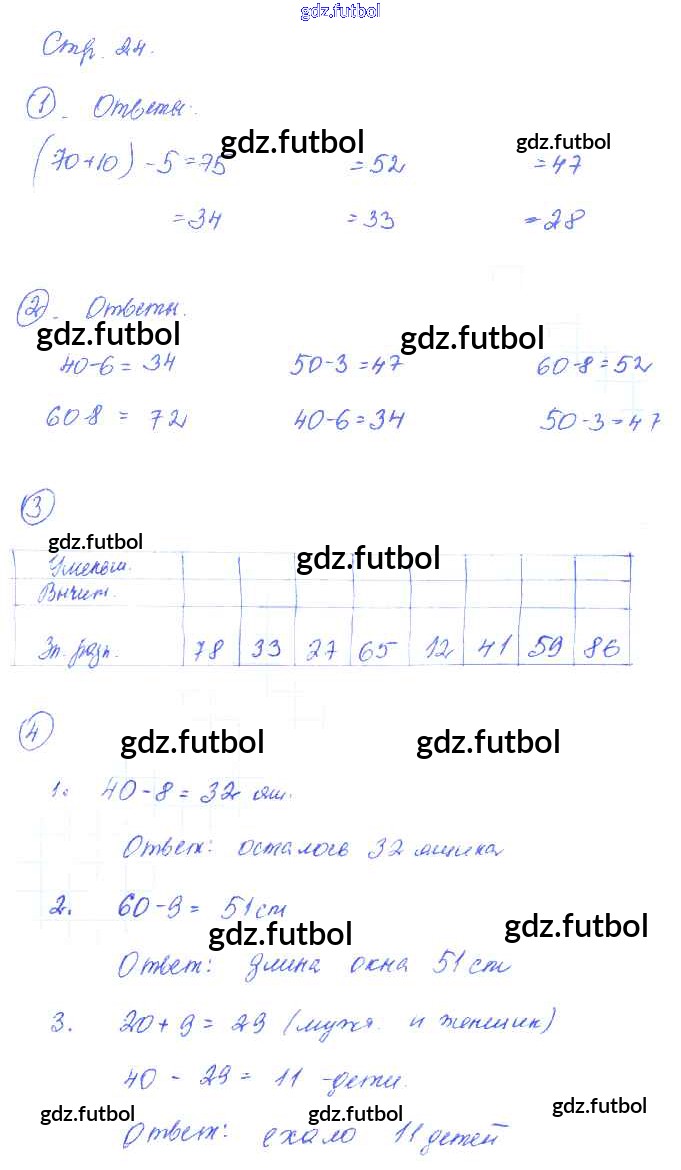 gdz.futbol
Стр. 24.
1. Ответы.
gdz.futbol gdz.futbol
(70+10) - 5 = 75 = 52 = 47
= 34 = 33 = 28
2. Ответы.
gdz.futbol gdz.futbol
40-6 = 34 50-3 = 47 60-8 = 52
60 8 = 72 40-6 = 34 50-3 = 47
3
gdz.futbol gdz.futbol
Уменьш.
Вычит.
Зн. разн. 78 33 27 65 12 41 59 86
4
gdz.futbol gdz.futbol
1. 40-8 = 32 ящ.
Ответ: осталось 32 ящика
2. 60-9 = 51 см
gdz.futbol gdz.futbol
Ответ: длина окна 51 см
3. 20+9 = 29 (мужч. и женщин)
40 - 29 = 11 -дети.
gdz.futbol gdz.futbol gdz.futbol
Ответ: ехало 11 детей